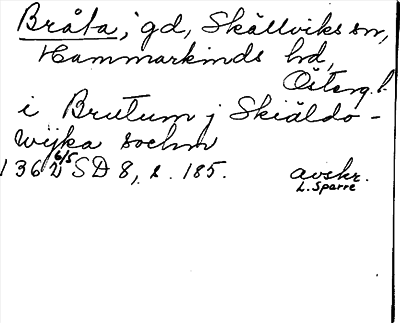 Bråta, gd, Skällviks sn,
Hammarkinds hd,
Österg. l.
i Brutum j Skiäldo-
wijka sochn
1362 6/5 SD 8, s. 185. avskr.
L. Sparre